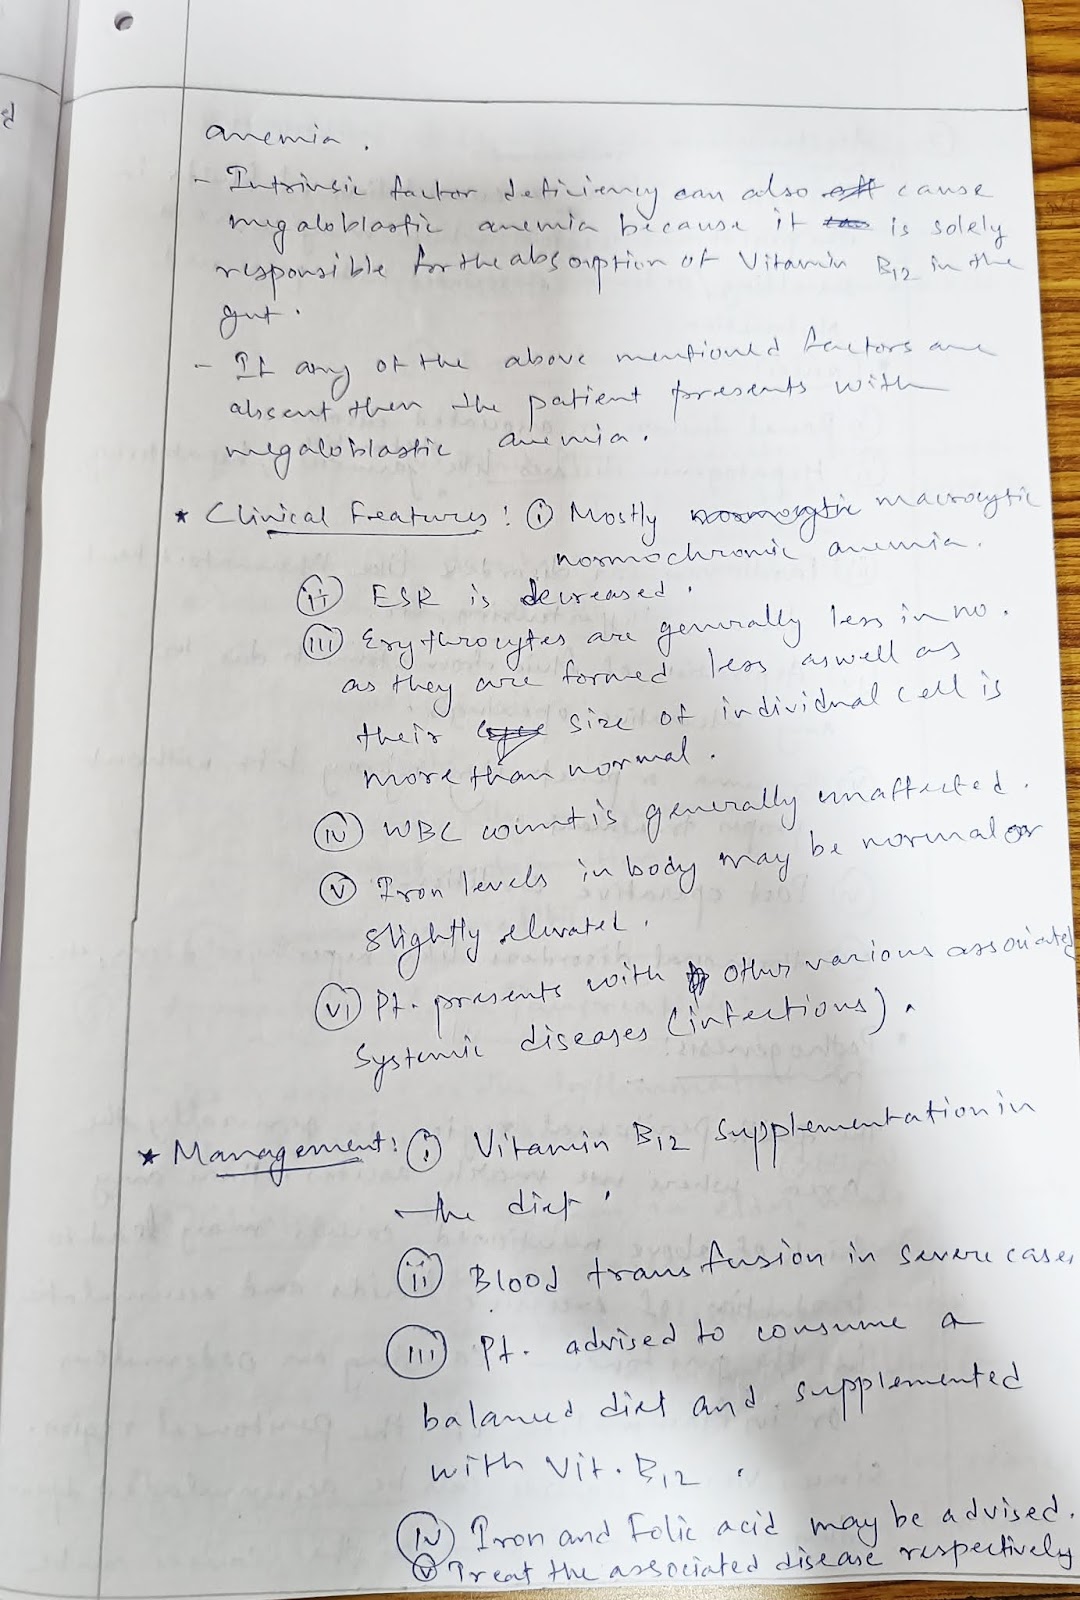 anemia.
- Intrinsic factor deficiency can also cause
megaloblastic anemia because it is solely
responsible for the absorption of Vitamin B12 in the
gut.
- If any of the above mentioned factors are
absent then the patient presents with
megaloblastic anemia.
* Clinical Features: (i) Mostly normocytic macrocytic
normochromic anemia.
(ii) ESR is decreased.
(iii) Erythrocytes are generally less in no.
as they are formed less aswell as
their size of individual cell is
more than normal.
(iv) WBC count is generally unaffected.
(v) Iron levels in body may be normal or
slightly elevated.
(vi) Pt. presents with other various associated
systemic diseases (infections).
* Management: (i) Vitamin B12 supplementation in
the diet.
(ii) Blood transfusion in severe cases
(iii) Pt. advised to consume a
balanced diet and supplemented
with Vit. B12.
(iv) Iron and Folic acid may be advised.
(v) Treat the associated disease respectively